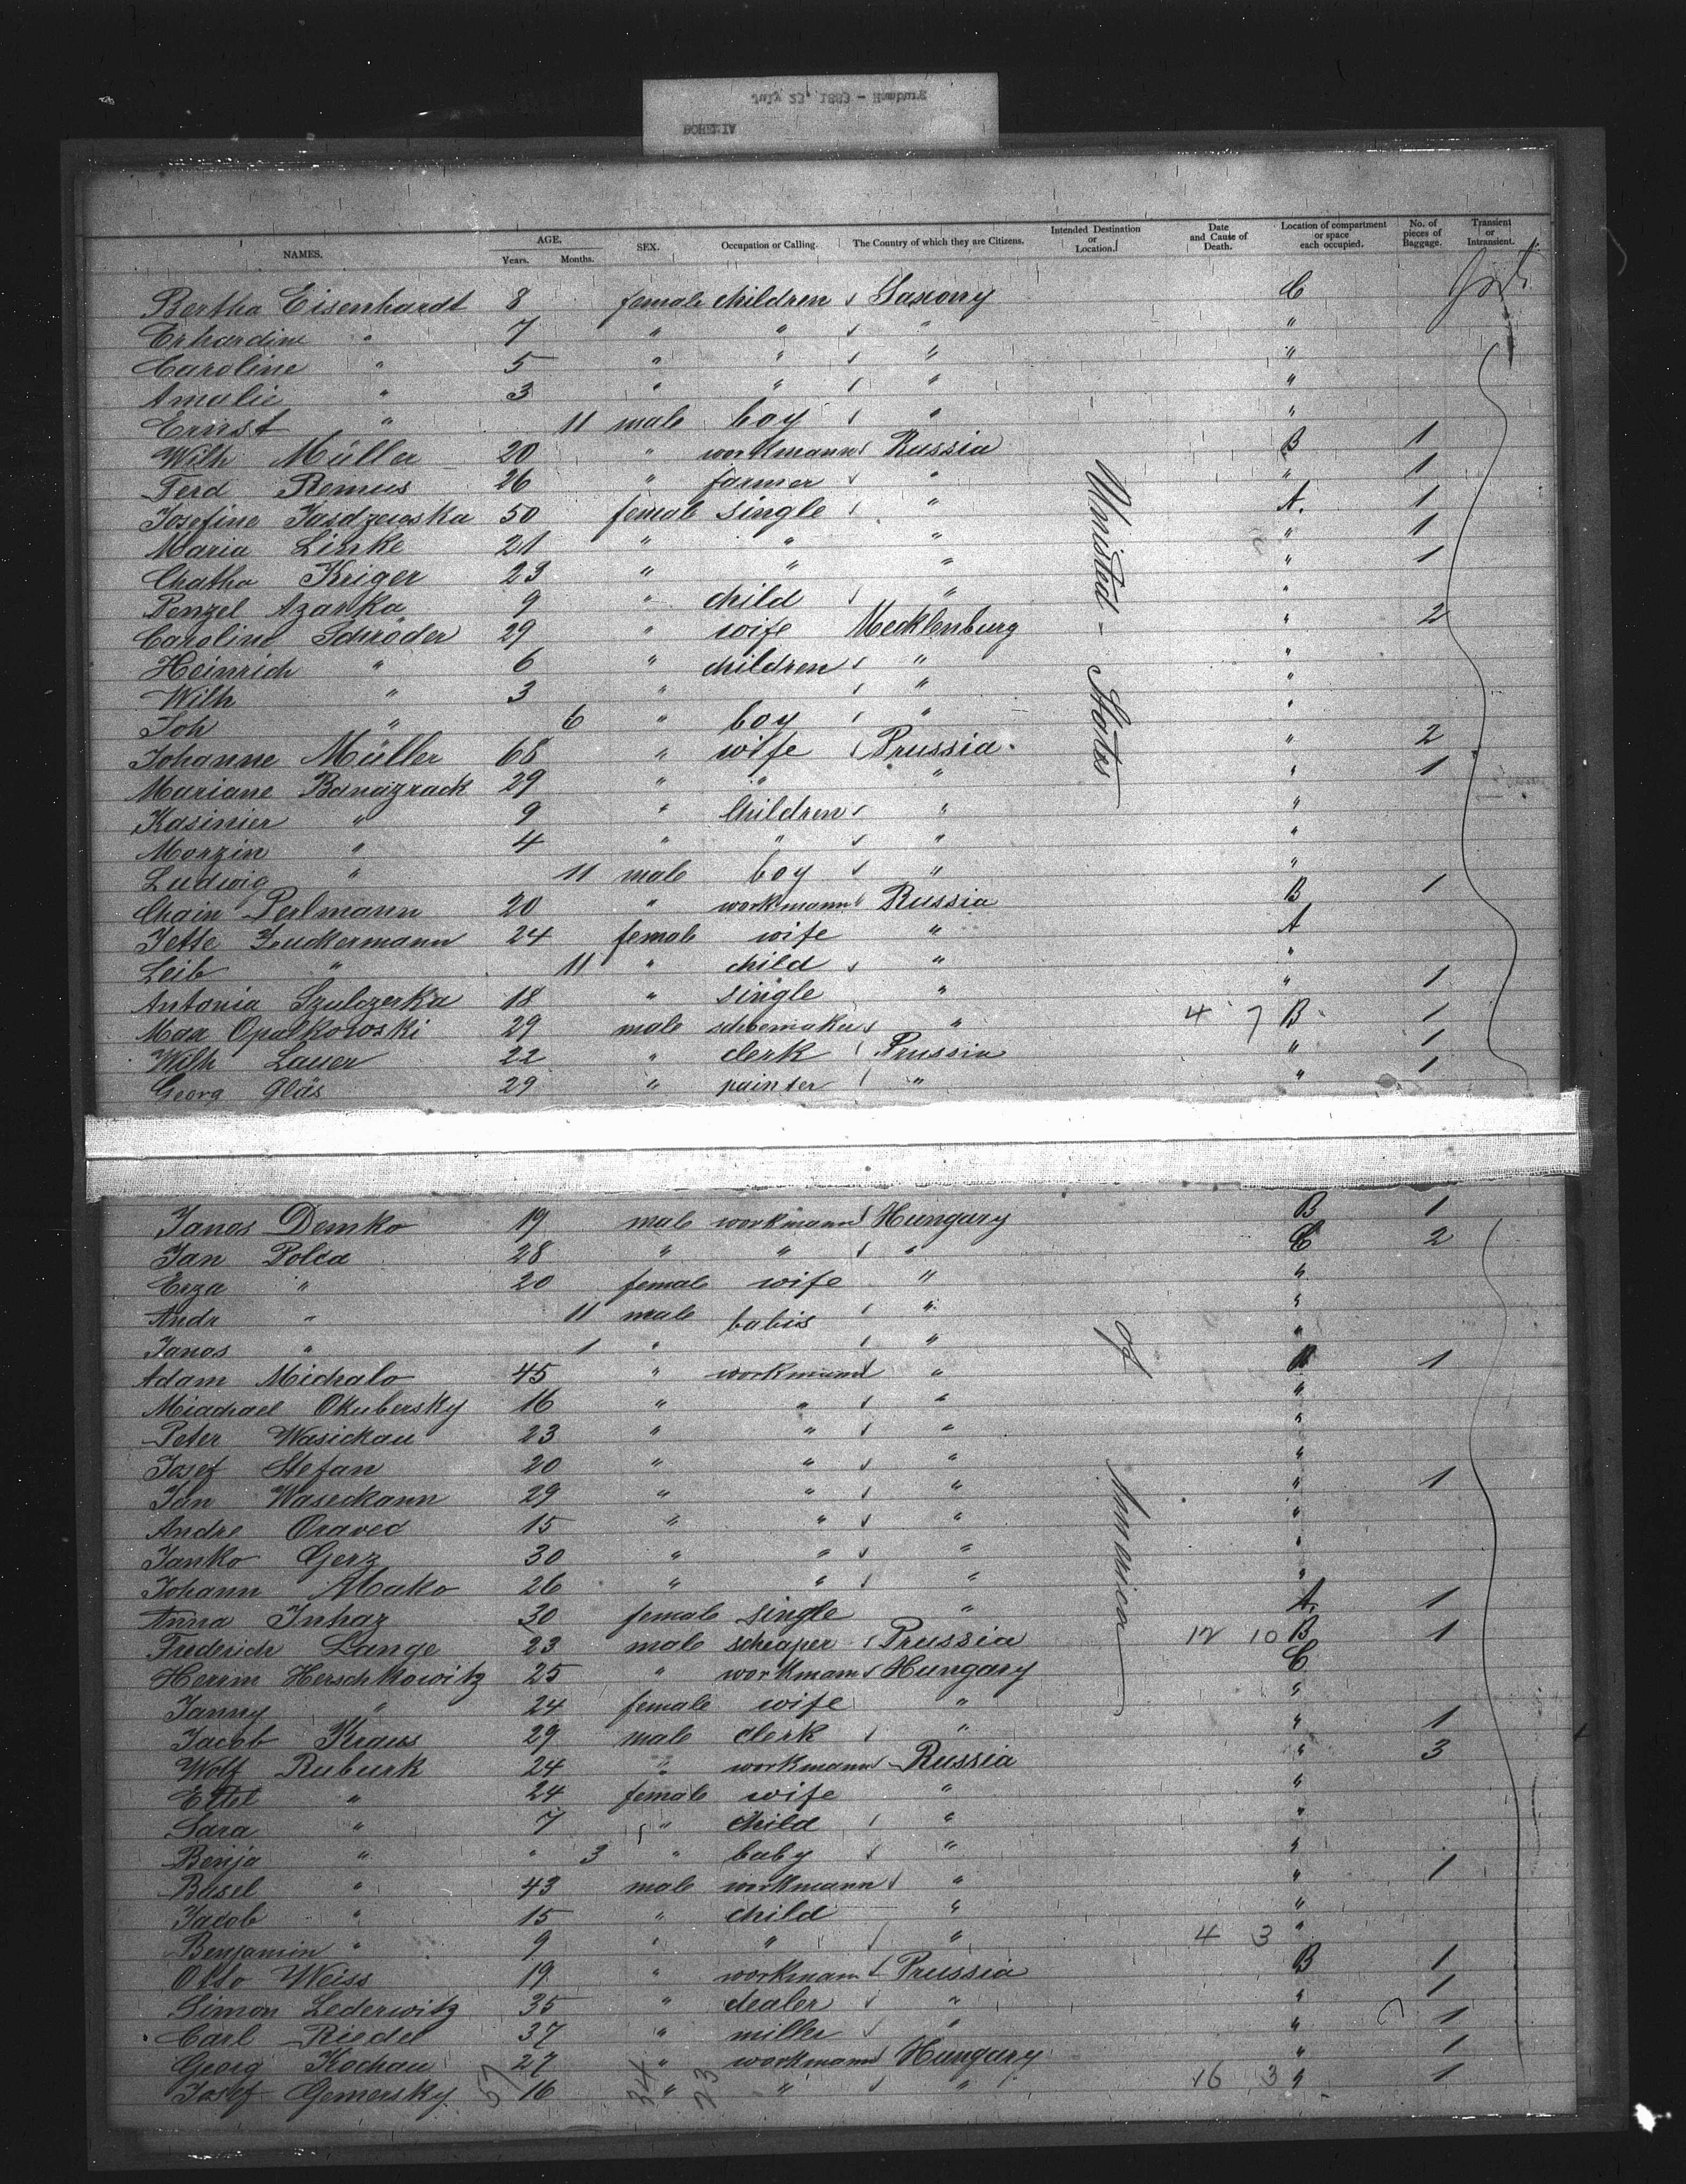 July 23, 1883 - Hamburg
BOHEMIA
NAMES. AGE. Years. Months. SEX. Occupation or Calling. The Country of which they are Citizens. Intended Destination or Location. Date and Cause of Death. Location of compartment or space each occupied. No. of pieces of Baggage. Transient or Intransient.
Bertha Eisenhardt 8 female children Saxony C
Erhardine " 7 " " " "
Caroline " 5 " " " "
Amalie " 3 " " " "
Ernst " 11 male boy " "
Wilh Müller 20 " workmann Russia B 1
Ferd Remus 26 " farmer " " 1
Josefine Jasdzewska 50 female single " A. 1
Maria Linke 21 " " " " 1
Chatha Kriger 23 " " " " 1
Penzel Azarka 9 " child " "
Caroline Schröder 29 " wife Mecklenburg " 2
Heinrich " 6 " children " "
Wilh " 3 " " "
Joh " 6 " boy " "
Johanne Müller 68 " wife Prussia. " 2
Mariane 29 " " " " 1
Kasinier " 9 " Children " "
Morzin " 4 " " " "
Ludwig " 11 male boy " "
Chain Perlmann 20 " workmann Russia B 1
Jette Zuckermann 24 female wife " A
Leib " 11 " child " "
Antonia Szulczerka 18 " single " " 1
Max Opalkowski 29 male schoemaker " 4 7 B 1
Wilh Lauer 22 " clerk Prussia " 1
Georg Gläs 29 " painter " " 1
Unnisted - States
Janos Demko 19 male workmann Hungary B 1
Jan Polca 28 " " " C 2
Erza " 20 female wife " "
Andr " 11 male babis " "
Janos " 1 " " "
Adam Michalo 45 " workmann " 1
Miachael Okubersky 16 " " " "
Peter Wasickau 23 " " " "
Josef Stefan 20 " " " "
Jan Waseckann 29 " " " " 1
Andre Oravec 15 " " " "
Janko Gerz 30 " " " "
Johann Mako 26 " " " "
Anna Juhaz 30 female single " A. 1
Frederich Lange 23 male scheaper Prussia 12 10 B 1
Herrm Herschkowitz 25 " workmann Hungary C
Fanny " 24 female wife " "
Jacob Kraus 29 male clerk " " 1
Wolf Ruburk 24 " workmann Russia " 3
Ettel " 24 female wife " "
Sara " 7 " child " "
Benja " " 3 " baby " "
Basel " 43 male workmann " " 1
Jacob " 15 " child " "
Benjamin " 9 " " " 4 3 "
Otto Weiss 19 " workmann Prussia B 1
Simon Lederwitz 35 " dealer " " 1
Carl Riedel 37 " miller " " 1
Georg Kochau 27 " workmann Hungary " 1
Josef Gemersky 16 " " " 16 3 " 1
57 34 23
of Amarica